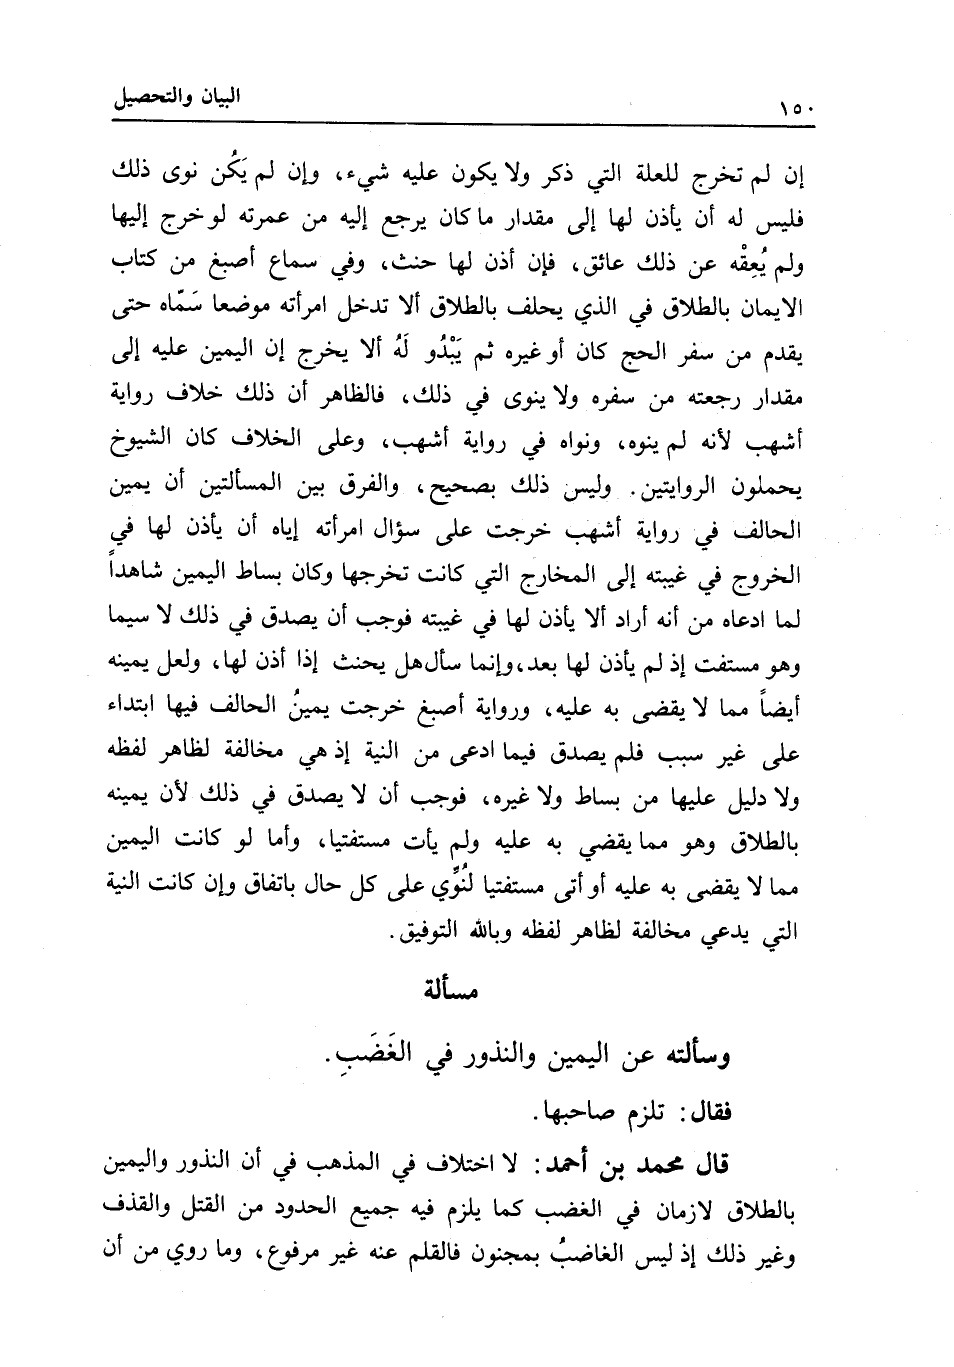 ١٥٠ البيان والتحصيل
إن لم تخرج للعلة التي ذكر ولا يكون عليه شيء، وإن لم يَكُن نوى ذلك
فليس له أن يأذن لها إلى مقدار ما كان يرجع إليه من عمرته لو خرج إليها
ولم يُعِقْه عن ذلك عائق، فإن أذن لها حنث، وفي سماع أصبغ من كتاب
الايمان بالطلاق في الذي يحلف بالطلاق ألا تدخل امرأته موضعا سَمّاه حتى
يقدم من سفر الحج كان أو غيره ثم يَبْدُو لَهُ ألا يخرج إن اليمين عليه إلى
مقدار رجعته من سفره ولا ينوى في ذلك، فالظاهر أن ذلك خلاف رواية
أشهب لأنه لم ينوه، ونواه في رواية أشهب، وعلى الخلاف كان الشيوخ
يحملون الروايتين. وليس ذلك بصحيح، والفرق بين المسألتين أن يمين
الحالف في رواية أشهب خرجت على سؤال امرأته إياه أن يأذن لها في
الخروج في غيبته إلى المخارج التي كانت تخرجها وكان بساط اليمين شاهداً
لما ادعاه من أنه أراد ألا يأذن لها في غيبته فوجب أن يصدق في ذلك لا سيما
وهو مستفت إذ لم يأذن لها بعد، وإنما سأل هل يحنث إذا أذن لها، ولعل يمينه
أيضاً مما لا يقضى به عليه، ورواية أصبغ خرجت يمينُ الحالف فيها ابتداء
على غير سبب فلم يصدق فيما ادعى من النية إذ هي مخالفة لظاهر لفظه
ولا دليل عليها من بساط ولا غيره، فوجب أن لا يصدق في ذلك لأن يمينه
بالطلاق وهو مما يقضي به عليه ولم يأت مستفتيا، وأما لو كانت اليمين
مما لا يقضى به عليه أو أتى مستفتيا لنُوِّي على كل حال باتفاق وإن كانت النية
التي يدعي مخالفة لظاهر لفظه وبالله التوفيق.
مسألة
وسألته عن اليمين والنذور في الغَضَبِ.
فقال: تلزم صاحبها.
قال محمد بن أحمد: لا اختلاف في المذهب في أن النذور واليمين
بالطلاق لازمان في الغضب كما يلزم فيه جميع الحدود من القتل والقذف
وغير ذلك إذ ليس الغاضبُ بمجنون فالقلم عنه غير مرفوع، وما روي من أن